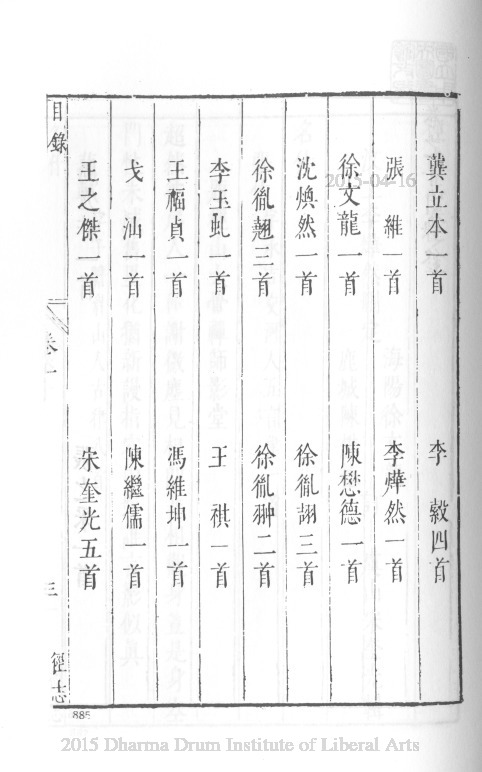 龔立本一首　李　縠四首
張　維一首　李燁然一首
徐文龍一首　陳懋德一首
沈煥然一首　徐胤翃三首
徐胤翹三首　徐胤翀二首
李玉虬一首　王　祺一首
王福貞一首　馮維坤一首
戈　汕一首　陳繼儒一首
王之傑一首　宋奎光五首
目錄　卷一　三　徑志
885
2015-04-16
2015 Dharma Drum Institute of Liberal Arts